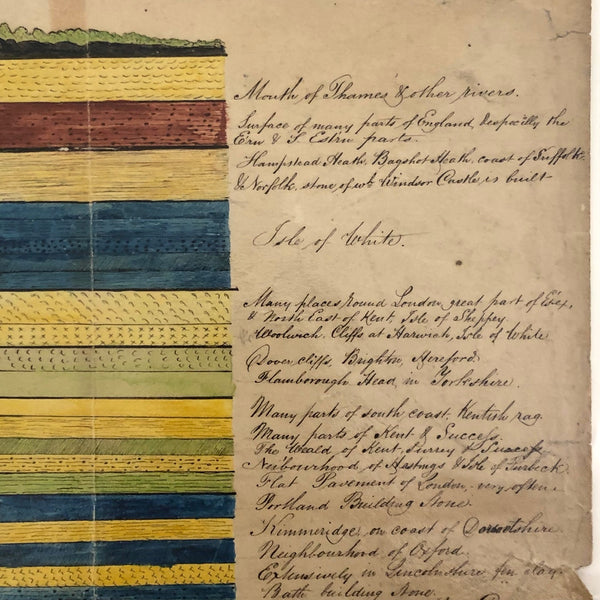 Mouth of Thames & other rivers.
Surface of many parts of England, & especilly the
Ern & S Estrn parts.
Hampstead Heath, Bagshot Heath, coast of Suffolk
& Norfolk, stone, of wh Windsor Castle, is built
Isle of White.
Many places round London, great part of Essex,
& North East of Kent, Isle of Sheppey
Woolwich, Cliffs at Harwich, Isle of White
Dover cliffs, Brighton, Hereford,
Flamborough Head in Yorkshire.
Many parts of south coast, Kentish rag.
Many parts of Kent & Sucsess.
The Weald of Kent, Surrey &
Neibourhood, of Hastings & Isle of Purbeck
Flat Pavement of London, very often.
Portland Building Stone.
Kimmeridge, on coast of Dorsetshire
Neighbourhood of Oxford.
Extensively in Lincolnshire fen
Bath building Stone.